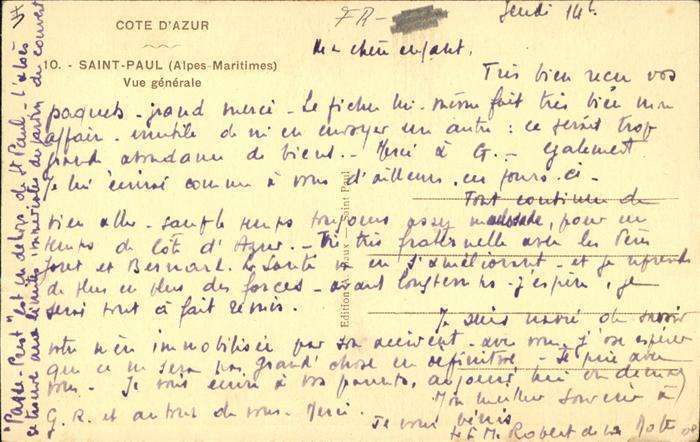 COTE D'AZUR
10. - SAINT-PAUL (Alpes-Maritimes)
Vue générale
FR-
Jeudi 14h.
Ma chère enfant.
Très bien reçu vos
paquets - grand merci - Le fichu lui-même fait très bien mon
affaire - inutile de m'en envoyer un autre : ce serait trop
grande abondance de biens. - Merci à G. - également
Je lui écrirai comme à vous d'ailleurs, ces jours-ci -
Tout continue de
bien aller - sauf le temps toujours assez maussade, pour un
temps de Côte d'Azur. - Très fraternelle avec les Pères
et Bernard. La Santé va en s'améliorant - et je reprends
de plus en plus des forces - avant longtemps - j'espère, je
serai tout à fait remis.
Je suis navré de savoir
votre mère immobilisée par son accident - avec vous, j'ose espérer
que ce ne sera pas grand'chose en définitive - Je prie avec
vous - Je vous écrirai à vos parents, aujourd'hui ou demain
Mon meilleur souvenir à
G. R. et autour de vous. Merci.
Je vous bénis
Robert de la
"Passe-Prest" est en dehors de St Paul - l'abbés
se trouve aux limites du jardin du couvent
Edition - Saint Paul